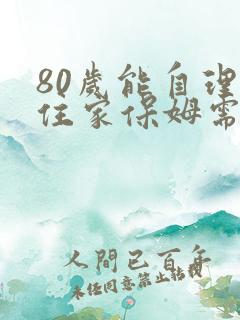 80歲能自理
住家保姆需
人間已百年
未经同意禁止转载